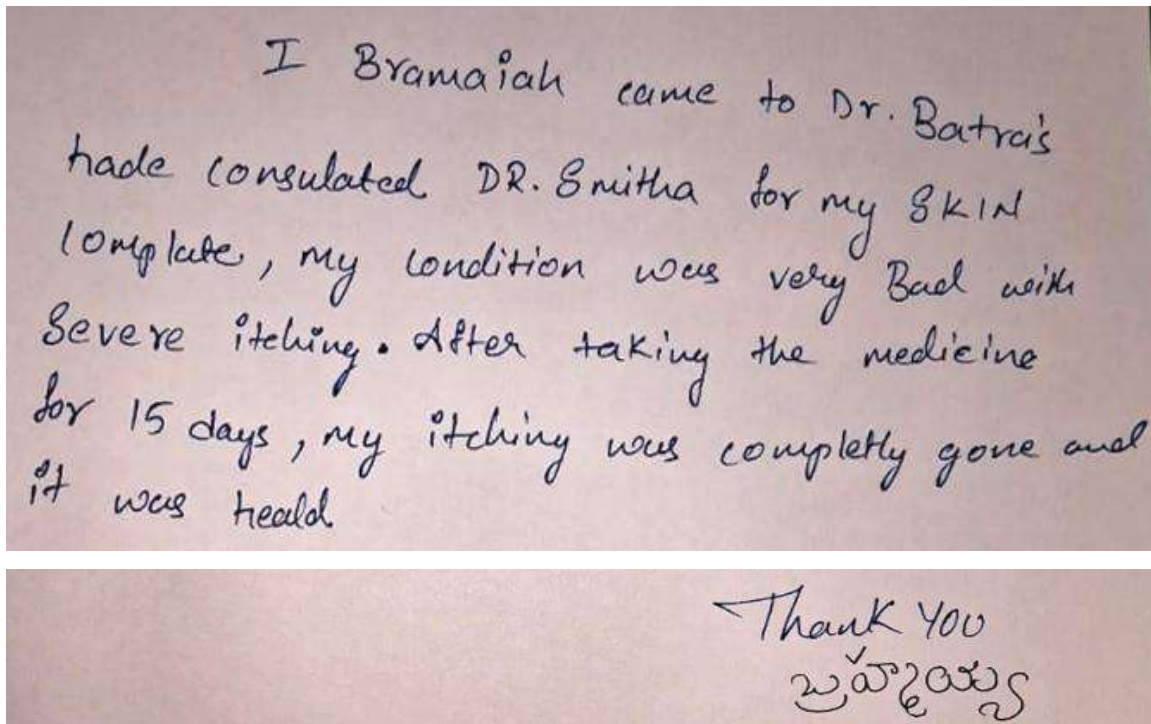 I Bramaiah came to Dr. Batra's
hade consulated DR. Smitha for my SKIN
complate, my condition was very Bad with
Severe itching. After taking the medicine
for 15 days, my itching was completly gone and
it was heald
Thank YOU
బ్రహ్మయ్య